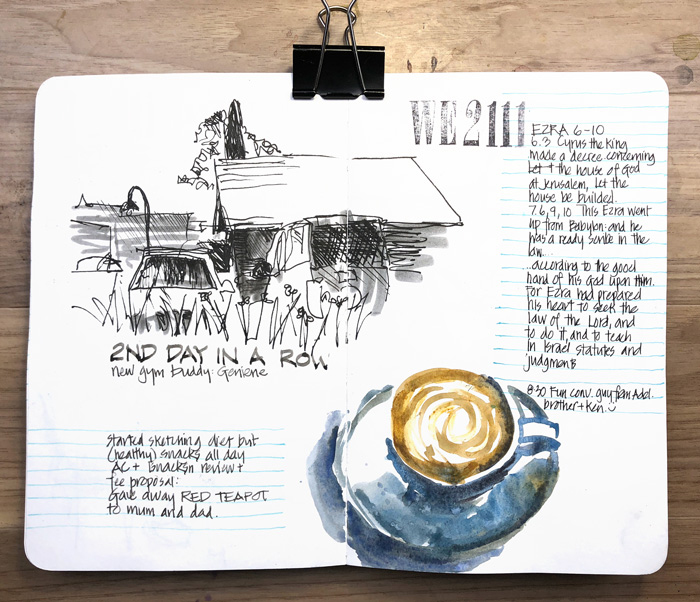 2ND DAY IN A ROW
new gym buddy: Geniene
started sketching diet but
(healthy) snacks all day
AC + review +
fee proposal:
gave away RED TEAPOT
to mum and dad.
WE 2111
EZRA 6-10
6.3 Cyrus the King
made a decree concerning
let the house of God
at Jerusalem, let the
house be builded.
7.6, 9, 10 This Ezra went
up from Babylon: and he
was a ready scribe in the
law...
...according to the good
hand of his God upon him.
For Ezra had prepared
his heart to seek the
law of the Lord, and
to do it, and to teach
in Israel statutes and
judgments
8:30 Fun conv. guy from Adel.
brother + Ken.